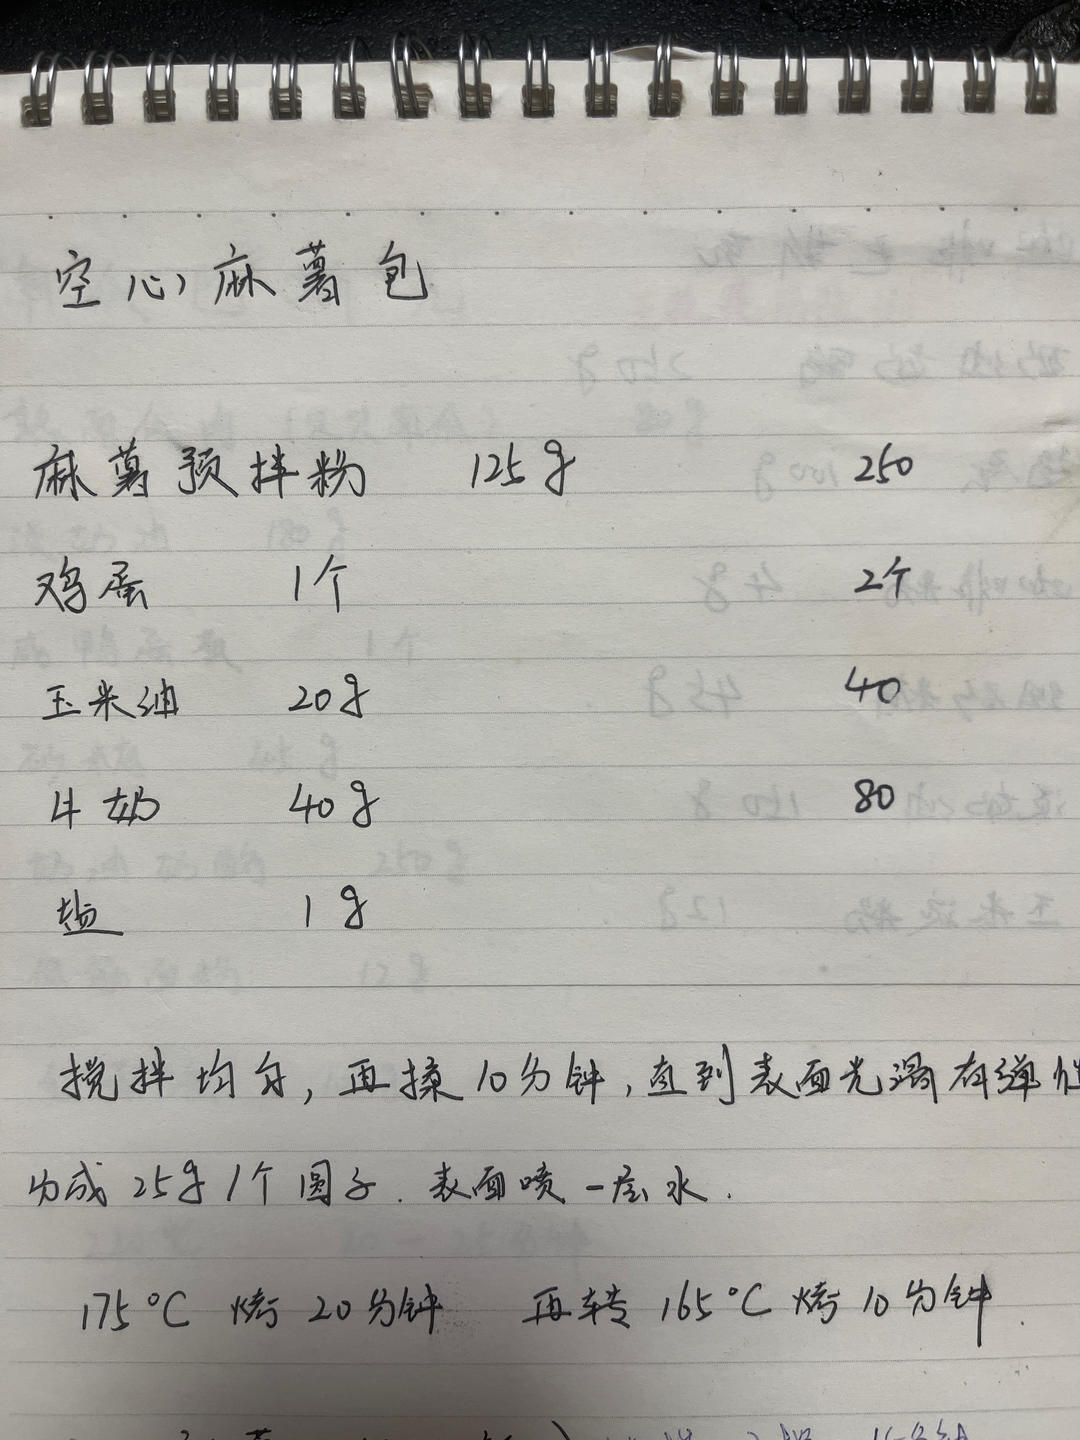 空心麻薯包
麻薯预拌粉 125g 250
鸡蛋 1个 2个
玉米油 20g 40
牛奶 40g 80
盐 1g
搅拌均匀,再揉10分钟,直到表面光滑有弹性
分成25g1个圆子.表面喷一层水.
175°C 烤20分钟 再转165°C烤10分钟.